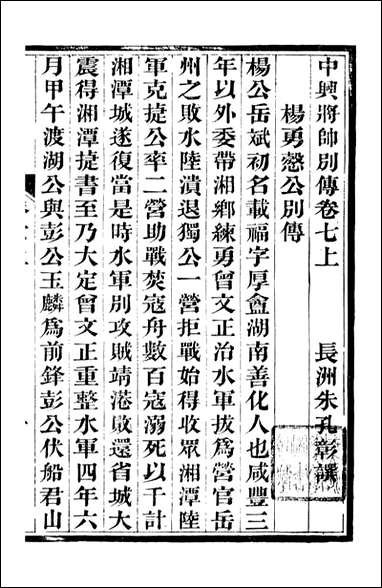 中興將帥別傳卷七上
長洲朱孔彰譔
楊勇愨公別傳
楊公岳斌初名載福字厚菴湖南善化人也咸豐三
年以外委帶湘鄉練勇曾文正治水軍拔爲營官岳
州之敗水陸潰退獨公一營拒戰始得收眾湘潭陸
軍克捷公率二營助戰焚寇舟數百寇溺死以千計
湘潭城遂復當是時水軍別攻賊靖港敗還省城大
震得湘潭捷書至乃大定曾文正重整水軍四年六
月甲午渡湖公與彭公玉麟爲前鋒彭公伏船君山